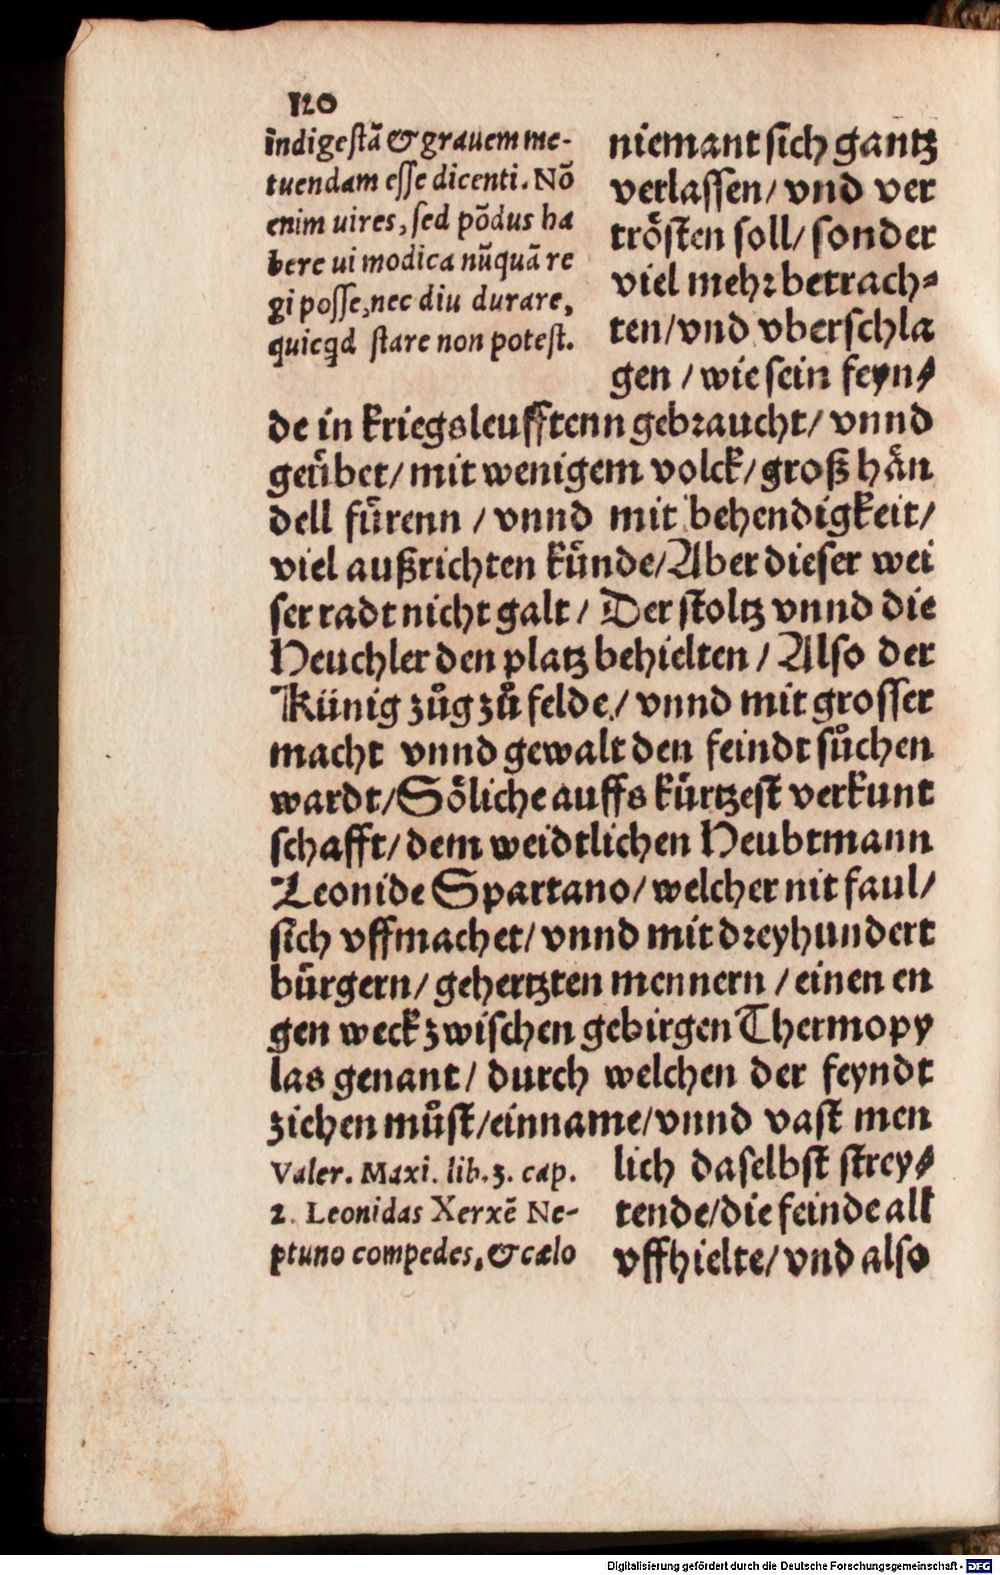 120
indigestã & grauem me-
tuendam esse dicenti. Nõ
enim uires, sed põdus ha
bere ui modica nũquã re
gi posse, nec diu durare,
quicq̃d stare non potest.
niemant sich gantz
verlassen/ vnd ver
troͤsten soll/ sonder
viel mehr betrach⸗
ten/ vnd vberschla
gen / wie sein feyn⸗
de in kriegsleufftenn gebraucht/ vnnd
geuͤbet/ mit wenigem volck/ groß haͤn
dell fuͤrenn / vnnd mit behendigkeit/
viel außrichten kuͤnde/ Aber dieser wei
ser radt nicht galt / Der stoltz vnnd die
Heuchler den platz behielten / Also der
Künig zuͦg zuͦ felde / vnnd mit grosser
macht vnnd gewalt den feindt suͦchen
wardt/ Soͤliche auffs kuͤrtzest verkunt
schafft/ dem weidtlichen Heubtmann
Leonide Spartano/ welcher nit faul/
sich vffmachet/ vnnd mit dreyhundert
buͤrgern/ gehertzten mennern / einen en
gen weck zwischen gebirgen Thermopy
las genant/ durch welchen der feyndt
ziehen muͦst/ einname/ vnnd vast men
Valer. Maxi. lib. 3. cap.
2. Leonidas Xerxẽ Ne-
ptuno compedes, & cælo
lich daselbst strey⸗
tende/ die feinde all
vffhielte/ vnd also
Digitalisierung gefördert durch die Deutsche Forschungsgemeinschaft - DFG